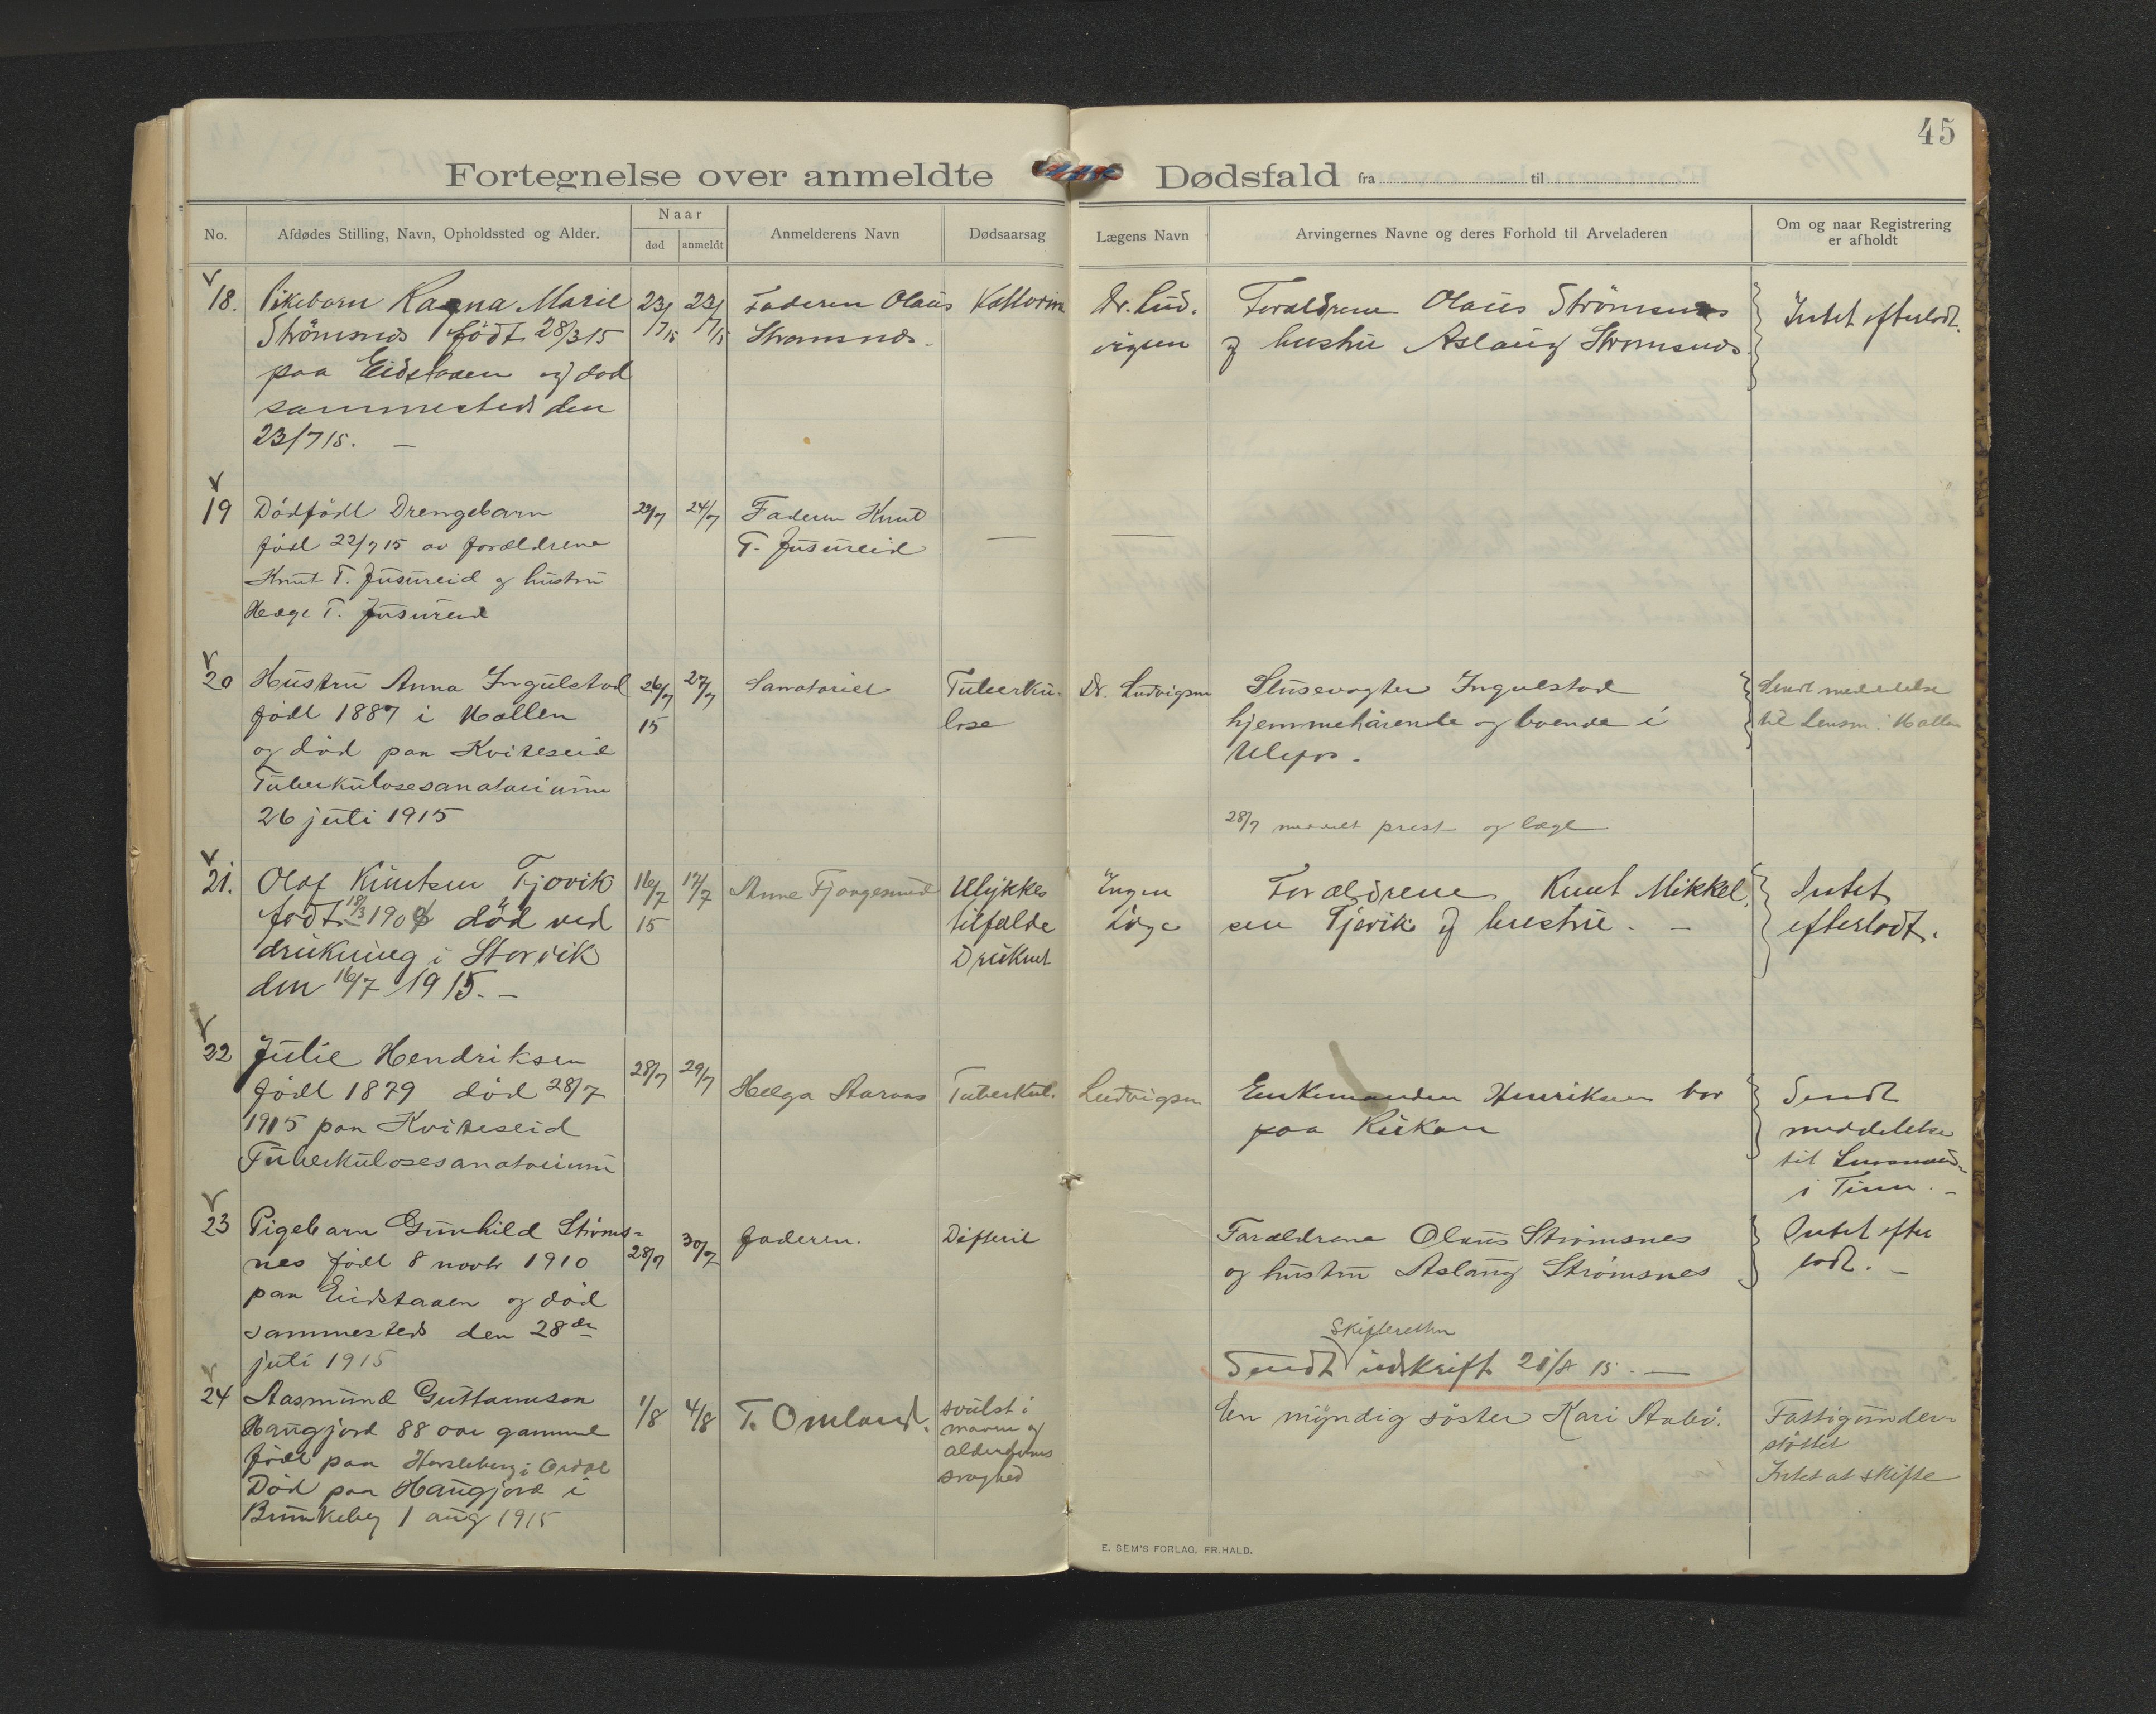 45
Fortegnelse over anmeldte Dødsfald fra til
No.
Afdødes Stilling, Navn, Opholdssted og Alder.
Naar
død
anmeldt
Anmelderens Navn
Dødsaarsag
Lægens Navn
Arvingernes Navne og deres Forhold til Arveladeren
Om og naar Registrering
er afholdt
18.
Pikebarn Ragna Marie
Strömsnes født 28/3 15
paa Eidstaaen og død
sammesteds den
23/7 15. —
23/7 15
23/7 15
Faderen Olaus
Strömsnes.
Dr. Lud-
vigsen
Forældrene Olaus Strömsnes
og hustru Aslaug Strömsnes.
Intet efterladt.
19
Dödfödt Drengebarn
født 22/7 15 av forældrene
Knut T. Jusureid og hustru
Hæge T. Jusureid
24/7
Faderen Knut
T. Jusureid
—
—
20
Hustru Anna Ingulstad
født 1887 i Hollen
og död paa Kviteseid
Tuberkulosesanatorium
26 juli 1915
26/7
15
27/7
Sanatoriet
Tuberku-
lose
Dr. Ludvigsen
Slusevogter Ingulstad
hjemmehörende og boende i
Ulefos.
28/7 meddelt prest og læge
Sendt meddelelse
til Lensm. i Hollen
21.
Olaf Knutsen Tjovik
født 18/3 190 död ved
drukning i Storvik
den 16/7 1915. —
16/7
15
17/7
Anne Fjongesund
Ulykkes
tilfælde
Druknet
Ingen
Læge
Forældrene Knut Mikkel-
sen Tjovik og hustru. —
Intet
efterladt.
22
Julie Hendriksen
født 1879 död 28/7
1915 paa Kviteseid
Tuberkulosesanatorium
28/7
29/7
Helga Staraas
Tuberkul.
Ludvigsen
Enkemanden Henriksen bor
paa Rjukan
Sendt
meddelelse
til Lensmand
i Tinn. —
23
Pigebarn Gunhild Ströms-
nes født 8 novbr 1910
paa Eidstaaen og död
sammesteds den 28de
juli 1915
28/7
30/7
Faderen.
Difterit
Forældrene Olaus Strömsnes
og hustru Aslaug Strömsnes
Intet efter
ladt. —
Skifteretten
Sendt udskrift 21/8 15. —
24
Aasmund Guttormson
Haugjord 88 aar gammel
født paa
Död paa Haugjord i
Brunkeberg 1 aug 1915
1/8
4/8
T. Omland.
svulst i
maven og
alderdoms
svaghed
En myndig söster Kari Aabö.
Fattigunder-
støttet
Intet at skifte
E. SEM'S FORLAG, FR.HALD.